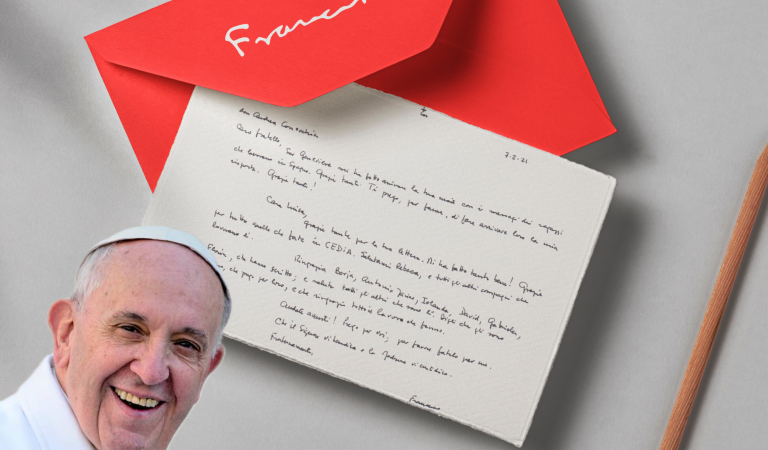 Francesco
7.2.21
don Andrea Conocchia
Caro fratello, Suor Geneviève mi ha fatto arrivare la tua mail con i messaggi dei ragazzi
che lavorano in Spagna. Grazie tanti. Ti prego, per favore, di fare arrivare loro la mia
risposta. Grazie tanti!
Cara Luisa,
grazie tante per la tua lettera. Mi ha fatto tanto bene! Grazie
per tutto quello che fate in CEDIA. Salutami Rebeca, e tutti gli altri compagni che
lavorano lì.
Ringrazio Borja, Antonio, Javier, Iolanda, David, Gabriela,
che hanno scritto; e saluto tutti gli altri che sono lì. Digli che gli sono
che prego per loro, e che ringrazio tutto il lavoro che fanno.
Andate avanti! Prego per voi; per favore fatelo per me.
Che il Signore vi benedica e la Madonna vi custodisca.
Fraternamente,
Francesco